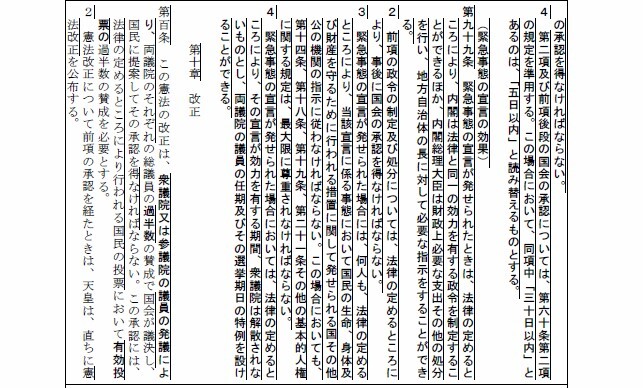 の承認を得なければならない。
４　第二項及び前項後段の国会の承認については、第六十条第二項
の規定を準用する。この場合において、同項中「三十日以内」と
あるのは、「五日以内」と読み替えるものとする。
（緊急事態の宣言の効果）
第九十九条　緊急事態の宣言が発せられたときは、法律の定めると
ころにより、内閣は法律と同一の効力を有する政令を制定するこ
とができるほか、内閣総理大臣は財政上必要な支出その他の処分
を行い、地方自治体の長に対して必要な指示をすることができ
る。
２　前項の政令の制定及び処分については、法律の定めるところに
より、事後に国会の承認を得なければならない。
３　緊急事態の宣言が発せられた場合には、何人も、法律の定める
ところにより、当該宣言に係る事態において国民の生命、身体及
び財産を守るために行われる措置に関して発せられる国その他
公の機関の指示に従わなければならない。この場合においても、
第十四条、第十八条、第十九条、第二十一条その他の基本的人権
に関する規定は、最大限に尊重されなければならない。
４　緊急事態の宣言が発せられた場合においては、法律の定めると
ころにより、その宣言が効力を有する期間、衆議院は解散されな
いものとし、両議院の議員の任期及びその選挙期日の特例を設け
ることができる。
第十章　改正
第百条　この憲法の改正は、衆議院又は参議院の議員の発議によ
り、両議院のそれぞれの総議員の過半数の賛成で国会が議決し、
国民に提案してその承認を得なければならない。この承認には、
法律の定めるところにより行われる国民の投票において有効投
票の過半数の賛成を必要とする。
２　憲法改正について前項の承認を経たときは、天皇は、直ちに憲
法改正を公布する。